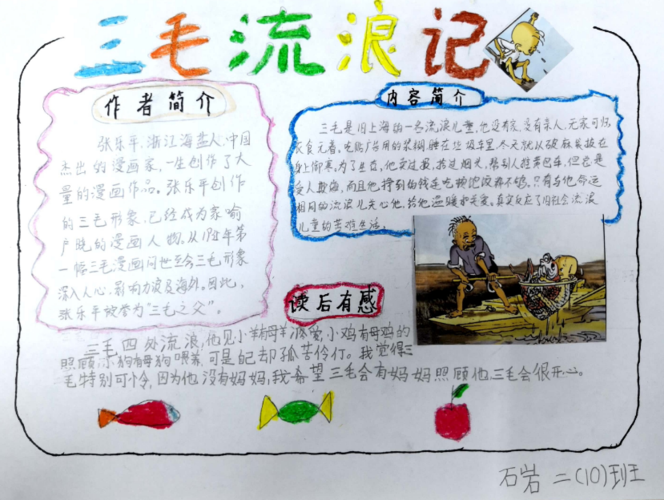 三毛流浪记
作者简介
张乐平,浙江海盐人,中国
杰出的漫画家,一生创作了大
量的漫画作品。张乐平创作
的三毛形象,已经成为家喻
户晓的漫画人物,从1935年第
一幅三毛漫画问世至今三毛形象
深入人心,影响力波及海外。因此,
张乐平被誉为"三毛之父"。
内容简介
三毛是旧上海的一名流浪儿童,他没有家,没有亲人,无家可归,
衣食无着。吃贴广告用的浆糊,睡在垃圾车里,冬天就以破麻袋披在
身上御寒。为了生存,他卖过报,拾过烟头,帮别人推黄包车,但总是
受人欺侮,而且他挣到的钱连吃顿饱饭都不够。只有与他命运
相同的流浪儿关心他,给他温暖和关爱。真实反应了旧社会流浪
儿童的苦难生活。
读后有感
三毛四处流浪,他见小羊有母羊疼爱,小鸡有母鸡的
照顾,小狗有母狗喂养,可是自己却孤苦伶仃。我觉得三
毛特别可怜,因为他没有妈妈,我希望三毛会有妈妈照顾他,三毛会很开心。
石岩 二(10)班